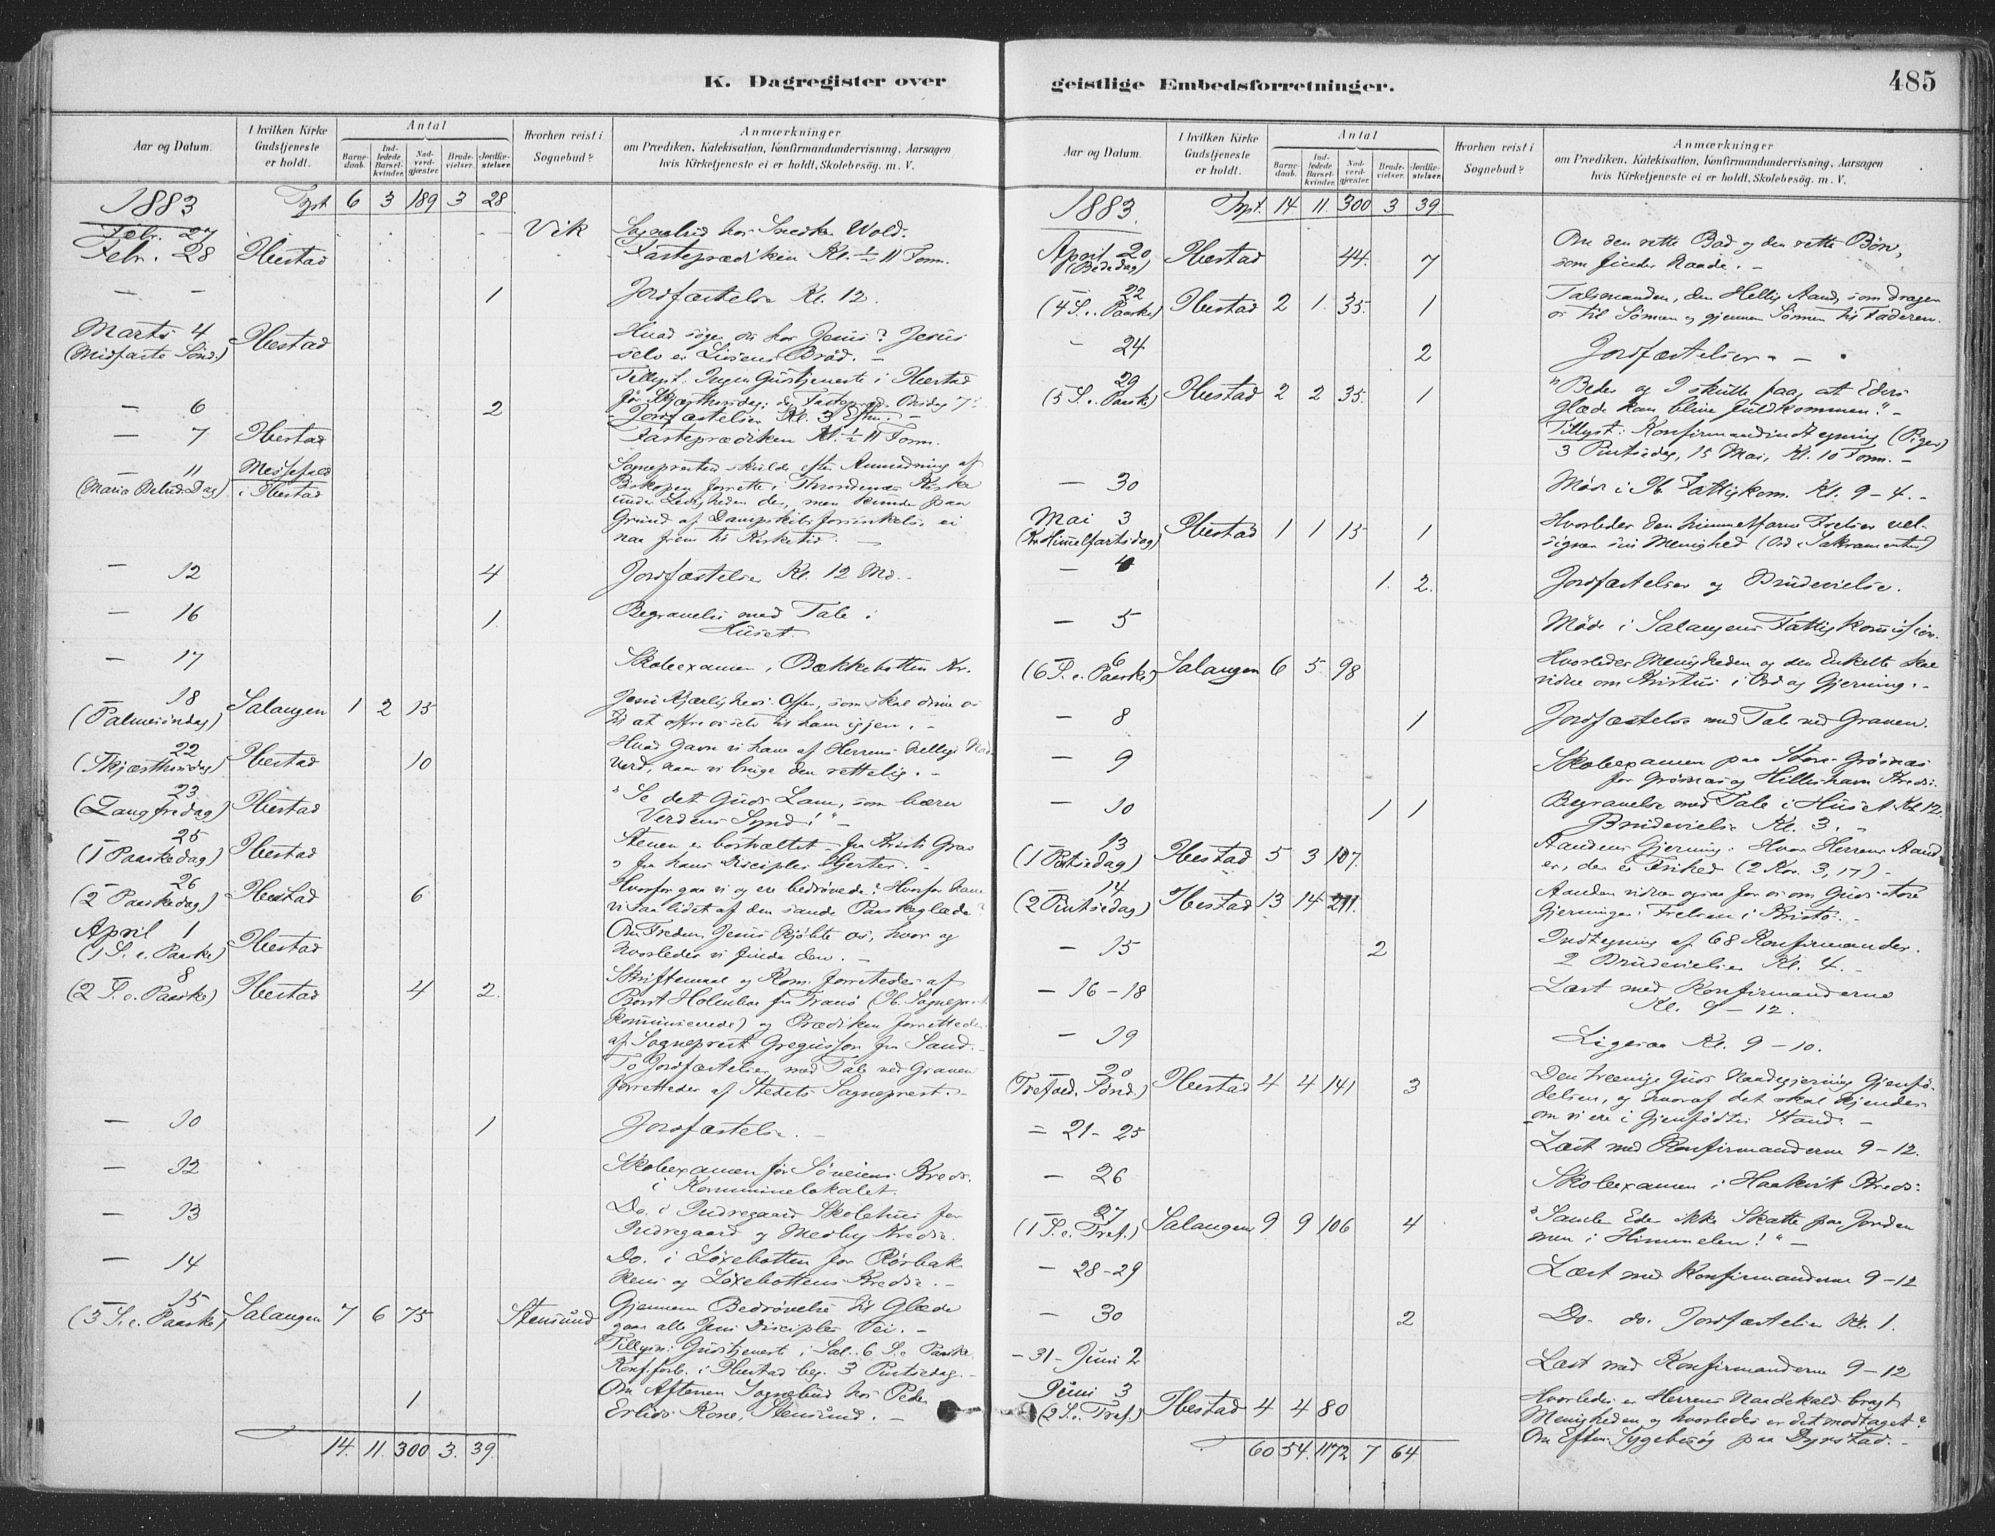 K. Dagregister over
Aar og Datum. I hvilken Kirke Gudstjeneste er holdt. Antal Barnedaab. Indledede Barselkvinder. Nadverdgjester. Brudevielser. Jordfæstelser. Hvorhen reist i Sognebud? Anmærkninger om Prædiken, Katekisation, Konfirmandundervisning, Aarsagen hvis Kirketjeneste ei er holdt, Skolebesøg. m. V.
1883 Tpt 6 3 189 3 28
Febr. 27 Vik Sognebud hos Snedker Wold.
Febr. 28 Ibestad Fasteprædiken Kl. ½ 11 Form.
— — 1 Jordfæstelse Kl. 12.
Marts 4 Ibestad Hvad søger du hos Jesus? Jesus
(Midfaste Sønd.) selv er Livsens Brød. —
Tillyst. Ingen Gudstjeneste i Ibestad
— 6 2 før Skjærthorsdag; dog Fastepræd. Onsdag 7.
Jordfæstelser Kl. 3 Efterm. —
— 7 Ibestad Fasteprædiken Kl. ½ 11 Form.
— 11 Messefald Sognepresten skulde efter Anmodning af
(Maria Bebud. Dag) i Ibestad Biskopen forrette i Throndenæs Kirke
under Ledigheden der, men kunde paa
Grund af Dampskibs forsinkelse ei
naa frem til Kirketid. —
— 12 4 Jordfæstelse Kl. 12 Md. -
— 16 1. Begravelse med Tale i
Huset.
— 17 Skoleexamen i Bækkebotten Kr.
— 18 Salangen 1 2 15 Jesu Kjærligheds Offer, som skal drive os
(Palmesøndag) til at ofre os selv til ham igjen. —
— 22 Ibestad 10 Hvad Gavn vi have af Herrens hellige Nad-
(Skjærthorsdag) verd, naar vi bruge den rettelig. —
— 23 Ibestad "Se det Guds Lam, som bærer
(Langfredag) Verdens Synd!" —
— 25 Ibestad Stenen er bortvæltet — fra Kristi Grav
(1 Paaskedag) og fra hans Disciples Hjerter. —
— 26 Ibestad 6 Hvorfor gaa vi og ere bedrøvede? Hvorfor have
(2 Paaskedag) vi saa lidet af den sande Paaskeglæde?
April 1 Ibestad Om Freden, Jesus kjøbte os, hvor og
(1 S. e. Paaske) hvorledes vi finde den. —
— 8 Ibestad 4 2. Skriftemaal og Kom. forrettedes af
(2 S. e. Paaske) Prost Holmboe fra Tranø (Ib. Sogneprest
kommunicerede) og Prædiken forrettedes
af Sogneprest Gregusson fra Sand. —
To Jordfæstelser med Tale ved Graven
forrettedes af Stedets Sogneprest. —
— 10 1 Jordfæstelse. —
— 12 Skoleexamen for Søveiens Kreds.
i Kommunelokalet.
— 13 Do. i Indregaard Skolehus for
Indregaard og Medby Kredse.
— 14 Do. i Løxebotten for Rørbak-
kens og Løxebottens Kredse. —
— 15 Salangen 7 6 75 Stensund Gjennem Bedrøvelse til Glæde
(3 S. e. Paaske) gaar alle Jesu Disciples Vei. —
Tillyst: Gudstjenest i Sal. 6 S. e. Paaske.
Konf. forb. i Ibestad beg. 3 Pintsedag. —
1 Om Aftenen Sognebud hos Peder
Erlids Kone, Stensund. —
14. 11. 300 3. 39.
geistlige Embedsforretninger. 485
Aar og Datum. I hvilken Kirke Gudstjeneste er holdt. Antal Barnedaab. Indledede Barselkvinder. Nadverdgjester. Brudevielser. Jordfæstelser. Hvorhen reist i Sognebud? Anmærkninger om Prædiken, Katekisation, Konfirmandundervisning, Aarsagen hvis Kirketjeneste ei er holdt, Skolebesøg. m. V.
1883. Tpt. 14 11 300 3 39
April 20 Ibestad 44. 7 Om den rette Bod og den rette Bøn,
(Bededag) som finder Naade. —
— 22 Ibestad 2 1. 35. 1 Talsmanden, den Hellig Aand, som drager
(4 S. e. Paaske) os til Sønnen og gjennem Sønnen til Faderen.
— 24 2 Jordfæstelser — —
— 29 Ibestad 2 2 35. 1 "Beder og I skulle faa, at Eders
(5 S. e. Paaske) Glæde kan blive fuldkommen." —
Tillyst: Konfirmandindtegning (Piger)
3 Pintsedag, 15 Mai, Kl. 10 Form. —
— 30 Møde i Ib. Fattigkom. Kl. 9 - 4. —
Mai 3 Ibestad 1 1 15 1 Hvorledes den himmelfarne Frelser vel-
(Kr. Himmelfartsdag) signer sin Menighed (Ord, Sakramenter)
— 4 1. 2. Jordfæstelser og Brudevielse.
— 5 Møde i Salangens Fattigkommission.
— 6 Salangen 6 5 98 Hvorledes Menigheden og den Enkelte skal
(6 S. e. Paaske) vidne om Kristus i Ord og Gjerning. —
— 8 1 Jordfæstelse med Tale ved Graven.
— 9 Skoleexamen paa Store-Grøsnæs
for Grøsnæs og Hilleshavn Kreds.
— 10 1 1 Begravelse med Tale i Huset Kl. 12.
Brudevielse Kl. 3.
— 13 Ibestad 5 3 107. Aandens Gjerning. Hvor Herrens Aand
(1 Pintsedag) er, der er Frihed (2 Kor. 3, 17) —
— 14 Ibestad 13 14 211. Aanden vidner ogsaa for os om Guds store
(2 Pintsedag) Gjerninger: Frelsen i Kristo. —
— 15 2 Indtegning af 68 Konfirmander.
2 Brudevielser Kl. 4. —
— 16 - 18 Læst med Konfirmanderne
Kl. 9 - 12.
— 19 Ligesaa Kl. 9 - 10.
— 20 Ibestad 4 4 141 3 Den treenige Guds Naadegjerning Gjenfø-
(Trefold. Sønd.) delsen, og hvoraf det skal kjendes
om vi ere i Gjenfødtes Stand. —
— 21 - 25 Læst med Konfirmanderne 9 - 12.
— 26 Skoleexamen i Haakvik Kreds.
— 27 Salangen 9 9 106 4 "Samler Eder ikke Skatte paa Jorden
(1 S. e. Tref.) men i Himmelen!" —
— 28 - 29 Læst med Konfirmanderne 9 - 12
— 30 2 Do. do. Jordfæstelser Kl. 1.
— 31 - Juni 2 Læst med Konfirmanderne 9 - 12
Juni 3 Ibestad 4 4 80 Hvorledes er Herrens Naadekald bragt
(2 S. e. Tref.) Menigheden og hvorledes er det modtaget?
Om Efterm. Sygebesøg paa Dyrstad. —
60 54. 1172 7 64